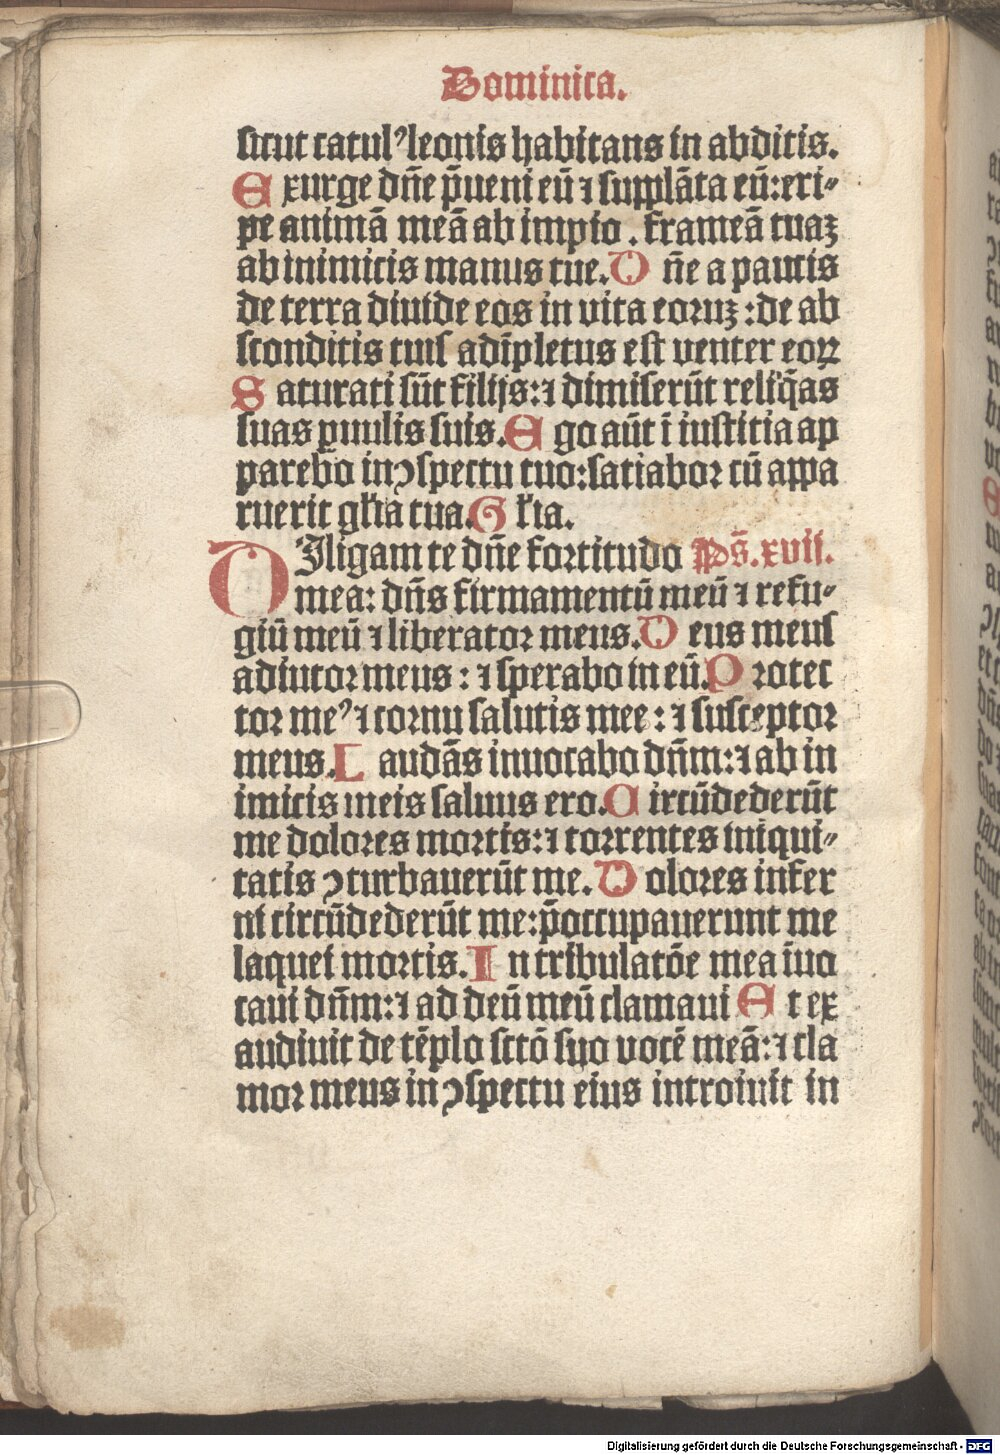 Dominica.
sicut catulꝰ leonis habitans in abditis.
Exurge dñe p̄ueni eū ⁊ supplāta eū: eri⸗
pe animā meā ab impio. frameā tuaꝫ
ab inimicis manus tue. Dñe a paucis
de terra diuide eos in vita eoruꝫ: de ab
sconditis tuis adīpletus est venter eoꝝ
Saturati sūt filijs: ⁊ dimiserūt reliq̄as
suas ꝑuulis suis. Ego aūt ī iustitia ap
parebo in ꝯspectu tuo: satiabor cū appa
ruerit gl̄ia tua. Gl̄ia.
DIligam te dñe fortitudo Ps̄. xvii.
mea: dñs firmamentū meū ⁊ refu⸗
giū meū ⁊ liberator meus. Deus meus
adiutor meus: ⁊ sperabo in eū. Protec
tor meꝰ ⁊ cornu salutis mee: ⁊ susceptor
meus. Laudās inuocabo dñm: ⁊ ab in
imicis meis saluus ero. Circūdederūt
me dolores mortis: ⁊ torrentes iniqui⸗
tatis ꝯturbauerūt me. Dolores infer
ni circūdederūt me: p̄occupauerunt me
laquei mortis. In tribulatōe mea īuo
caui dñm: ⁊ ad deū meū clamaui Et ex
audiuit de tēplo sctō suo vocē meā: ⁊ cla
mor meus in ꝯspectu eius introiuit in
Digitalisierung gefördert durch die Deutsche Forschungsgemeinschaft - DFG